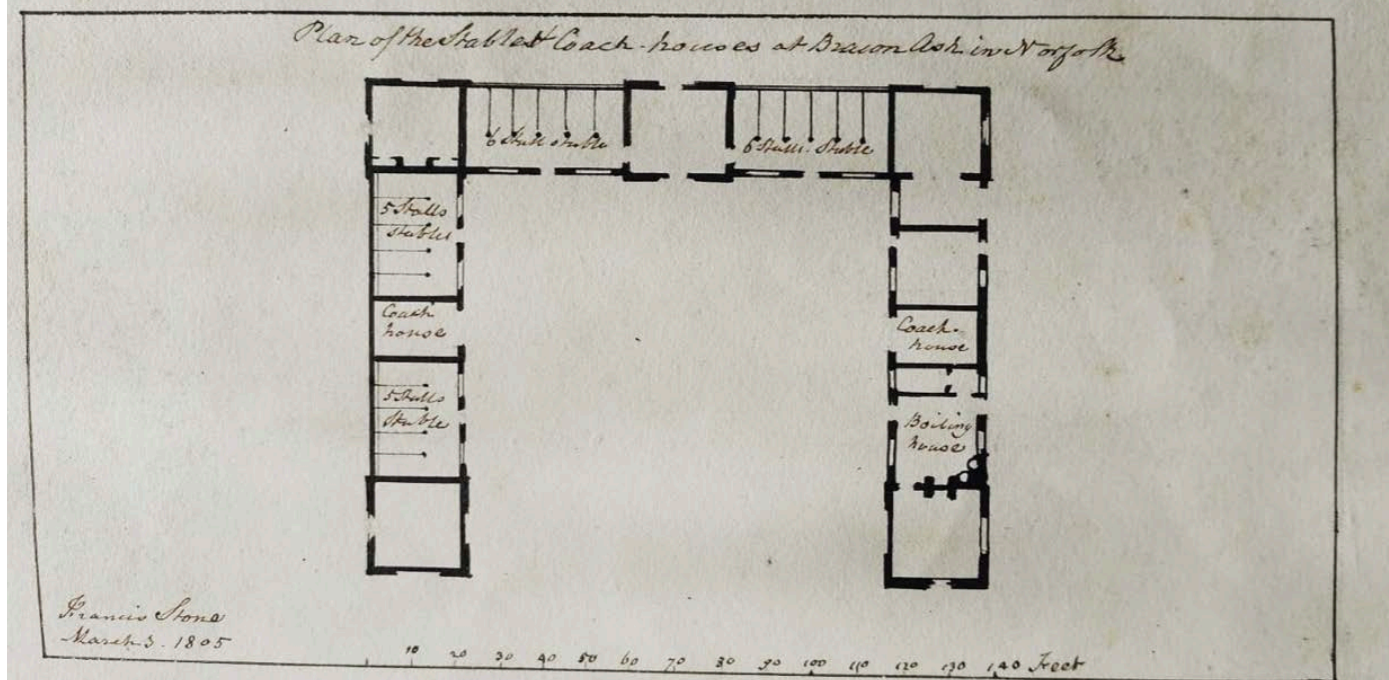 Plan of the Stables & Coach-houses at Bracon Ash in Norfolk
6 Stall stable
6 Stall. Stable
5 Stalls
stables
Coach
house
Coach-
house
5 Stalls
Stable
Boiling
house
Francis Stone
March 3. 1805
10 20 30 40 50 60 70 80 90 100 110 120 130 140 Feet